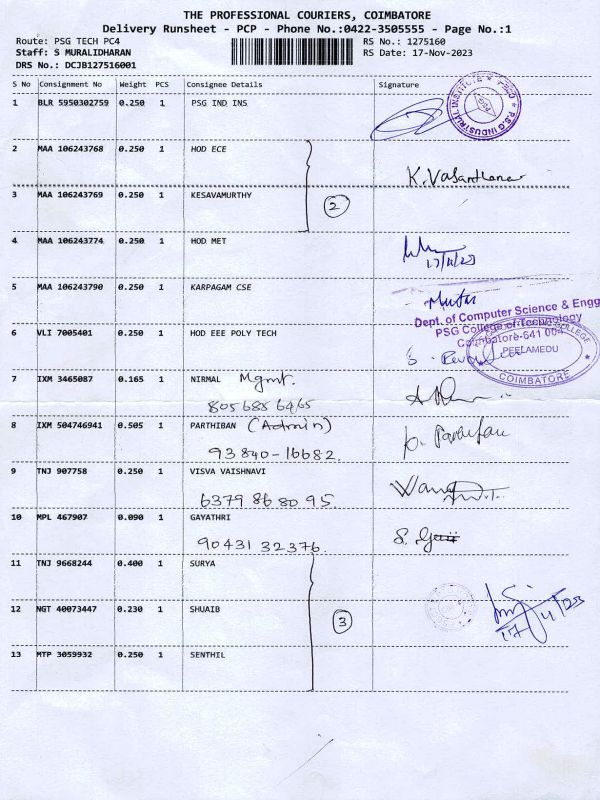 THE PROFESSIONAL COURIERS, COIMBATORE
Delivery Runsheet - PCP - Phone No.:0422-3505555 - Page No.:1
Route: PSG TECH PC4 RS No.: 1275160
Staff: S MURALIDHARAN RS Date: 17-Nov-2023
DRS No.: DCJB127516001
S No Consignment No Weight PCS Consignee Details Signature
1 BLR 5950302759 0.250 1 PSG IND INS
P.S.G INDUSTRIAL INSTITUTE
2 MAA 106243768 0.250 1 HOD ECE
K. Vasanthama
3 MAA 106243769 0.250 1 KESAVAMURTHY
2
4 MAA 106243774 0.250 1 HOD MET
17/11/23
5 MAA 106243790 0.250 1 KARPAGAM CSE
Dept. of Computer Science & Engg
PSG College of Technology
Coimbatore-641 004
6 VLI 7005401 0.250 1 HOD EEE POLY TECH
PEELAMEDU
COLLEGE
COIMBATORE
7 IXM 3465087 0.165 1 NIRMAL Mgmt.
805685 6465
8 IXM 504746941 0.505 1 PARTHIBAN (Admin)
93840-16682.
9 TNJ 907758 0.250 1 VISVA VAISHNAVI
6379 86 80 95.
10 MPL 467907 0.090 1 GAYATHRI
90431 32376.
11 TNJ 9668244 0.400 1 SURYA
12 NGT 40073447 0.230 1 SHUAIB
3
17/11/23
13 MTP 3059932 0.250 1 SENTHIL